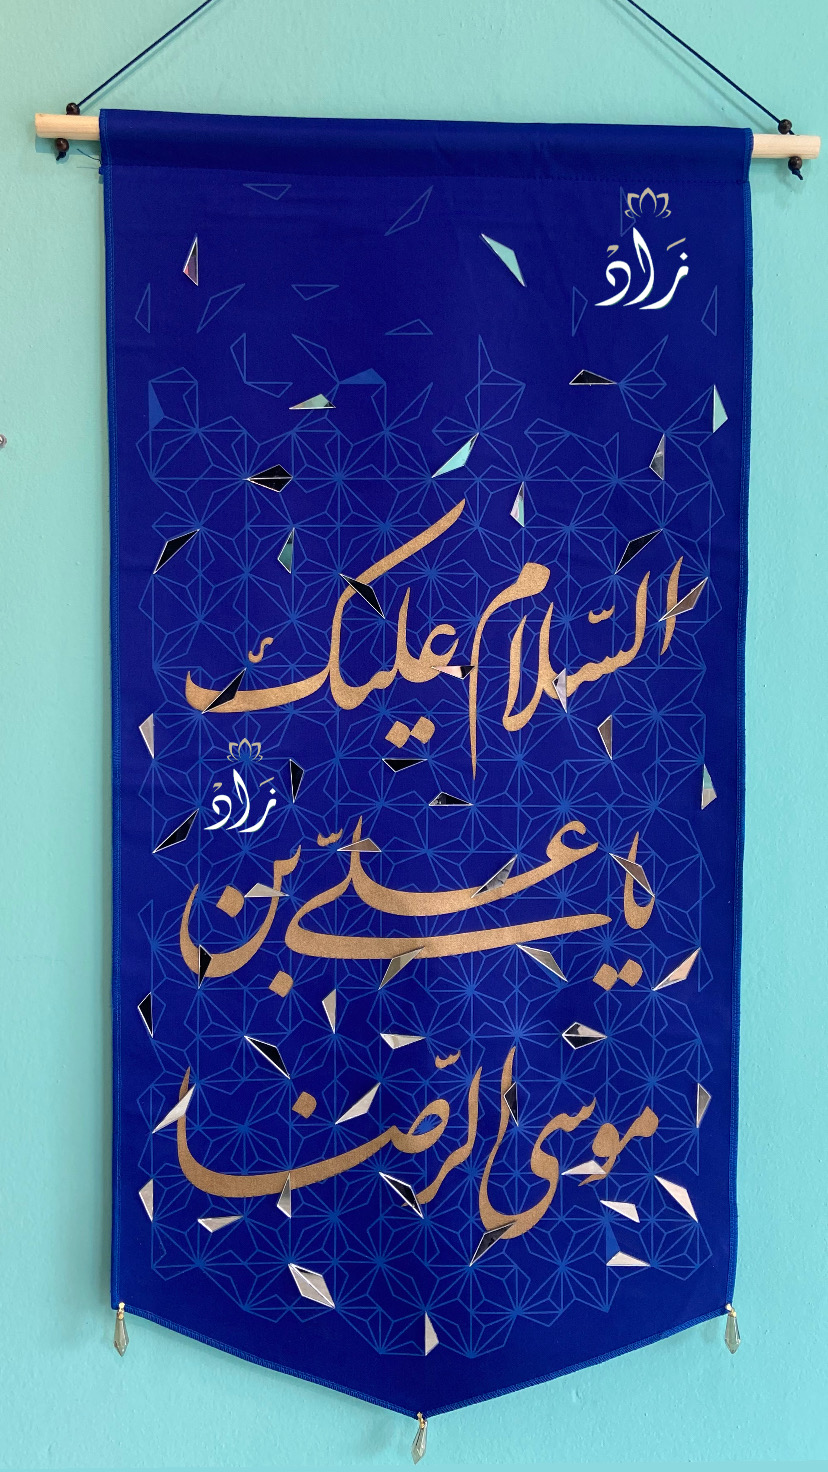 زاد
السّلام علیک
زاد
یا علیّ بن
موسی الرّضا